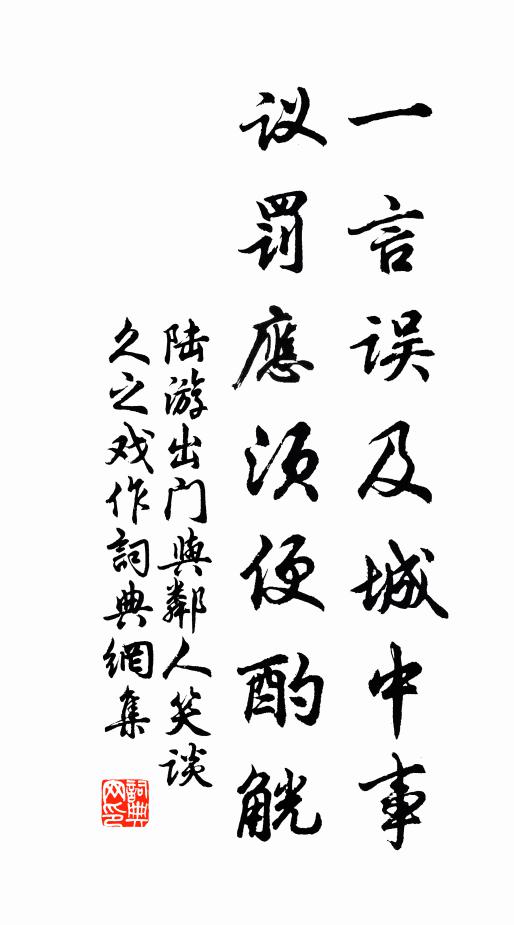 一言误及城中事
议罚應须便酌觥
陆游出门與鄰人笑谈
久之戏作詞典網集
詞典
网印